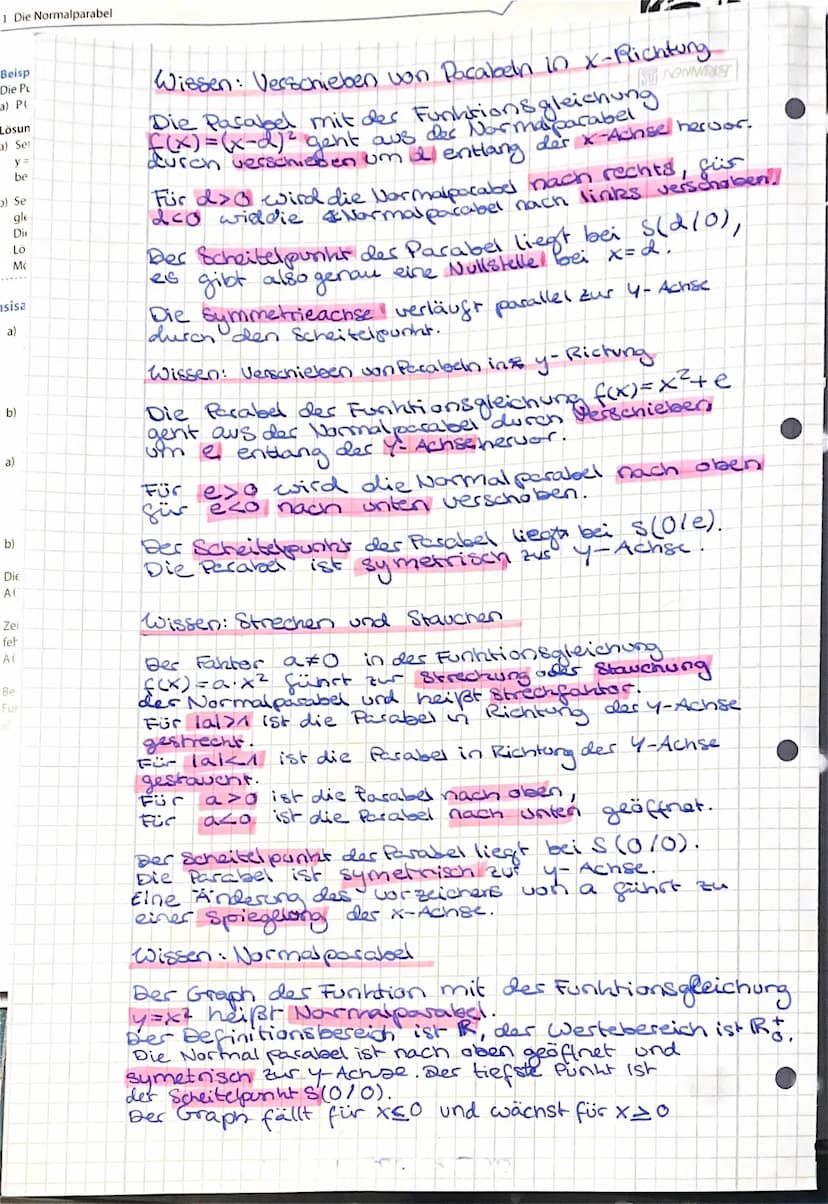 1 Die Normalparabel
Beisp
Die Pu
a) P(
Lösun
a) Set
y =
be
b) Se
gle
Di
Lö
Mo
asisa
a)
b)
a)
b)
Die
A(
Zei
feh
A(
Be
Fur
KNOWUNITY
Wissen: Verschieben von Parabeln in x-Richtung
Die Parabel mit der Funktionsgleichung
f(x)=(x-d)² geht aus der Normalparabel
durch verschieben um d entlang der x-Achse hervor.
Für d>0 wird die Normalparabel nach rechts, für
d<0 wid die Normalparabel nach links verschoben!
Der Scheitelpunkt der Parabel liegt bei S(d/0),
es gibt also genau eine Nullstelle bei x=d.
Die Symmetrieachse verläuft parallel zur y-Achse
durch den Scheitelpunkt.
Wissen: Verschieben von Parabeln in y-Richtung
Die Parabel der Funktionsgleichung f(x)=x²+e
geht aus der Normalparabel durch Verschieben
um e entlang der y-Achse hervor.
Für e>0 wird die Normalparabel nach oben
für e<0 nach unten verschoben.
Der Scheitelpunkt der Parabel liegt bei S(0/e).
Die Parabel ist symetrisch zur y-Achse.
Wissen: Strecken und Stauchen
Der Faktor a≠0 in der Funktionsgleichung
f(x)=a·x² führt zur Streckung oder Stauchung
der Normalparabel und heißt Streckfaktor.
Für |a|>1 ist die Parabel in Richtung der y-Achse
gestreckt.
Für |a|<1 ist die Parabel in Richtung der y-Achse
gestaucht.
Für a>0 ist die Parabel nach oben,
Für a<0 ist die Parabel nach unten geöffnet.
Der Scheitelpunkt der Parabel liegt bei S(0/0).
Die Parabel ist symetrisch zur y-Achse.
Eine Änderung des Vorzeichens von a führt zu
einer Spiegelung der x-Achse.
Wissen: Normalparabel
Der Graph der Funktion mit der Funktionsgleichung
y=x² heißt Normalparabel.
Der Definitionsbereich ist ℝ, der Wertebereich ist ℝ₀⁺.
Die Normalparabel ist nach oben geöffnet und
symetrisch zur y-Achse. Der tiefste Punkt ist
der Scheitelpunkt S(0/0).
Der Graph fällt für x≤0 und wächst für x≥0